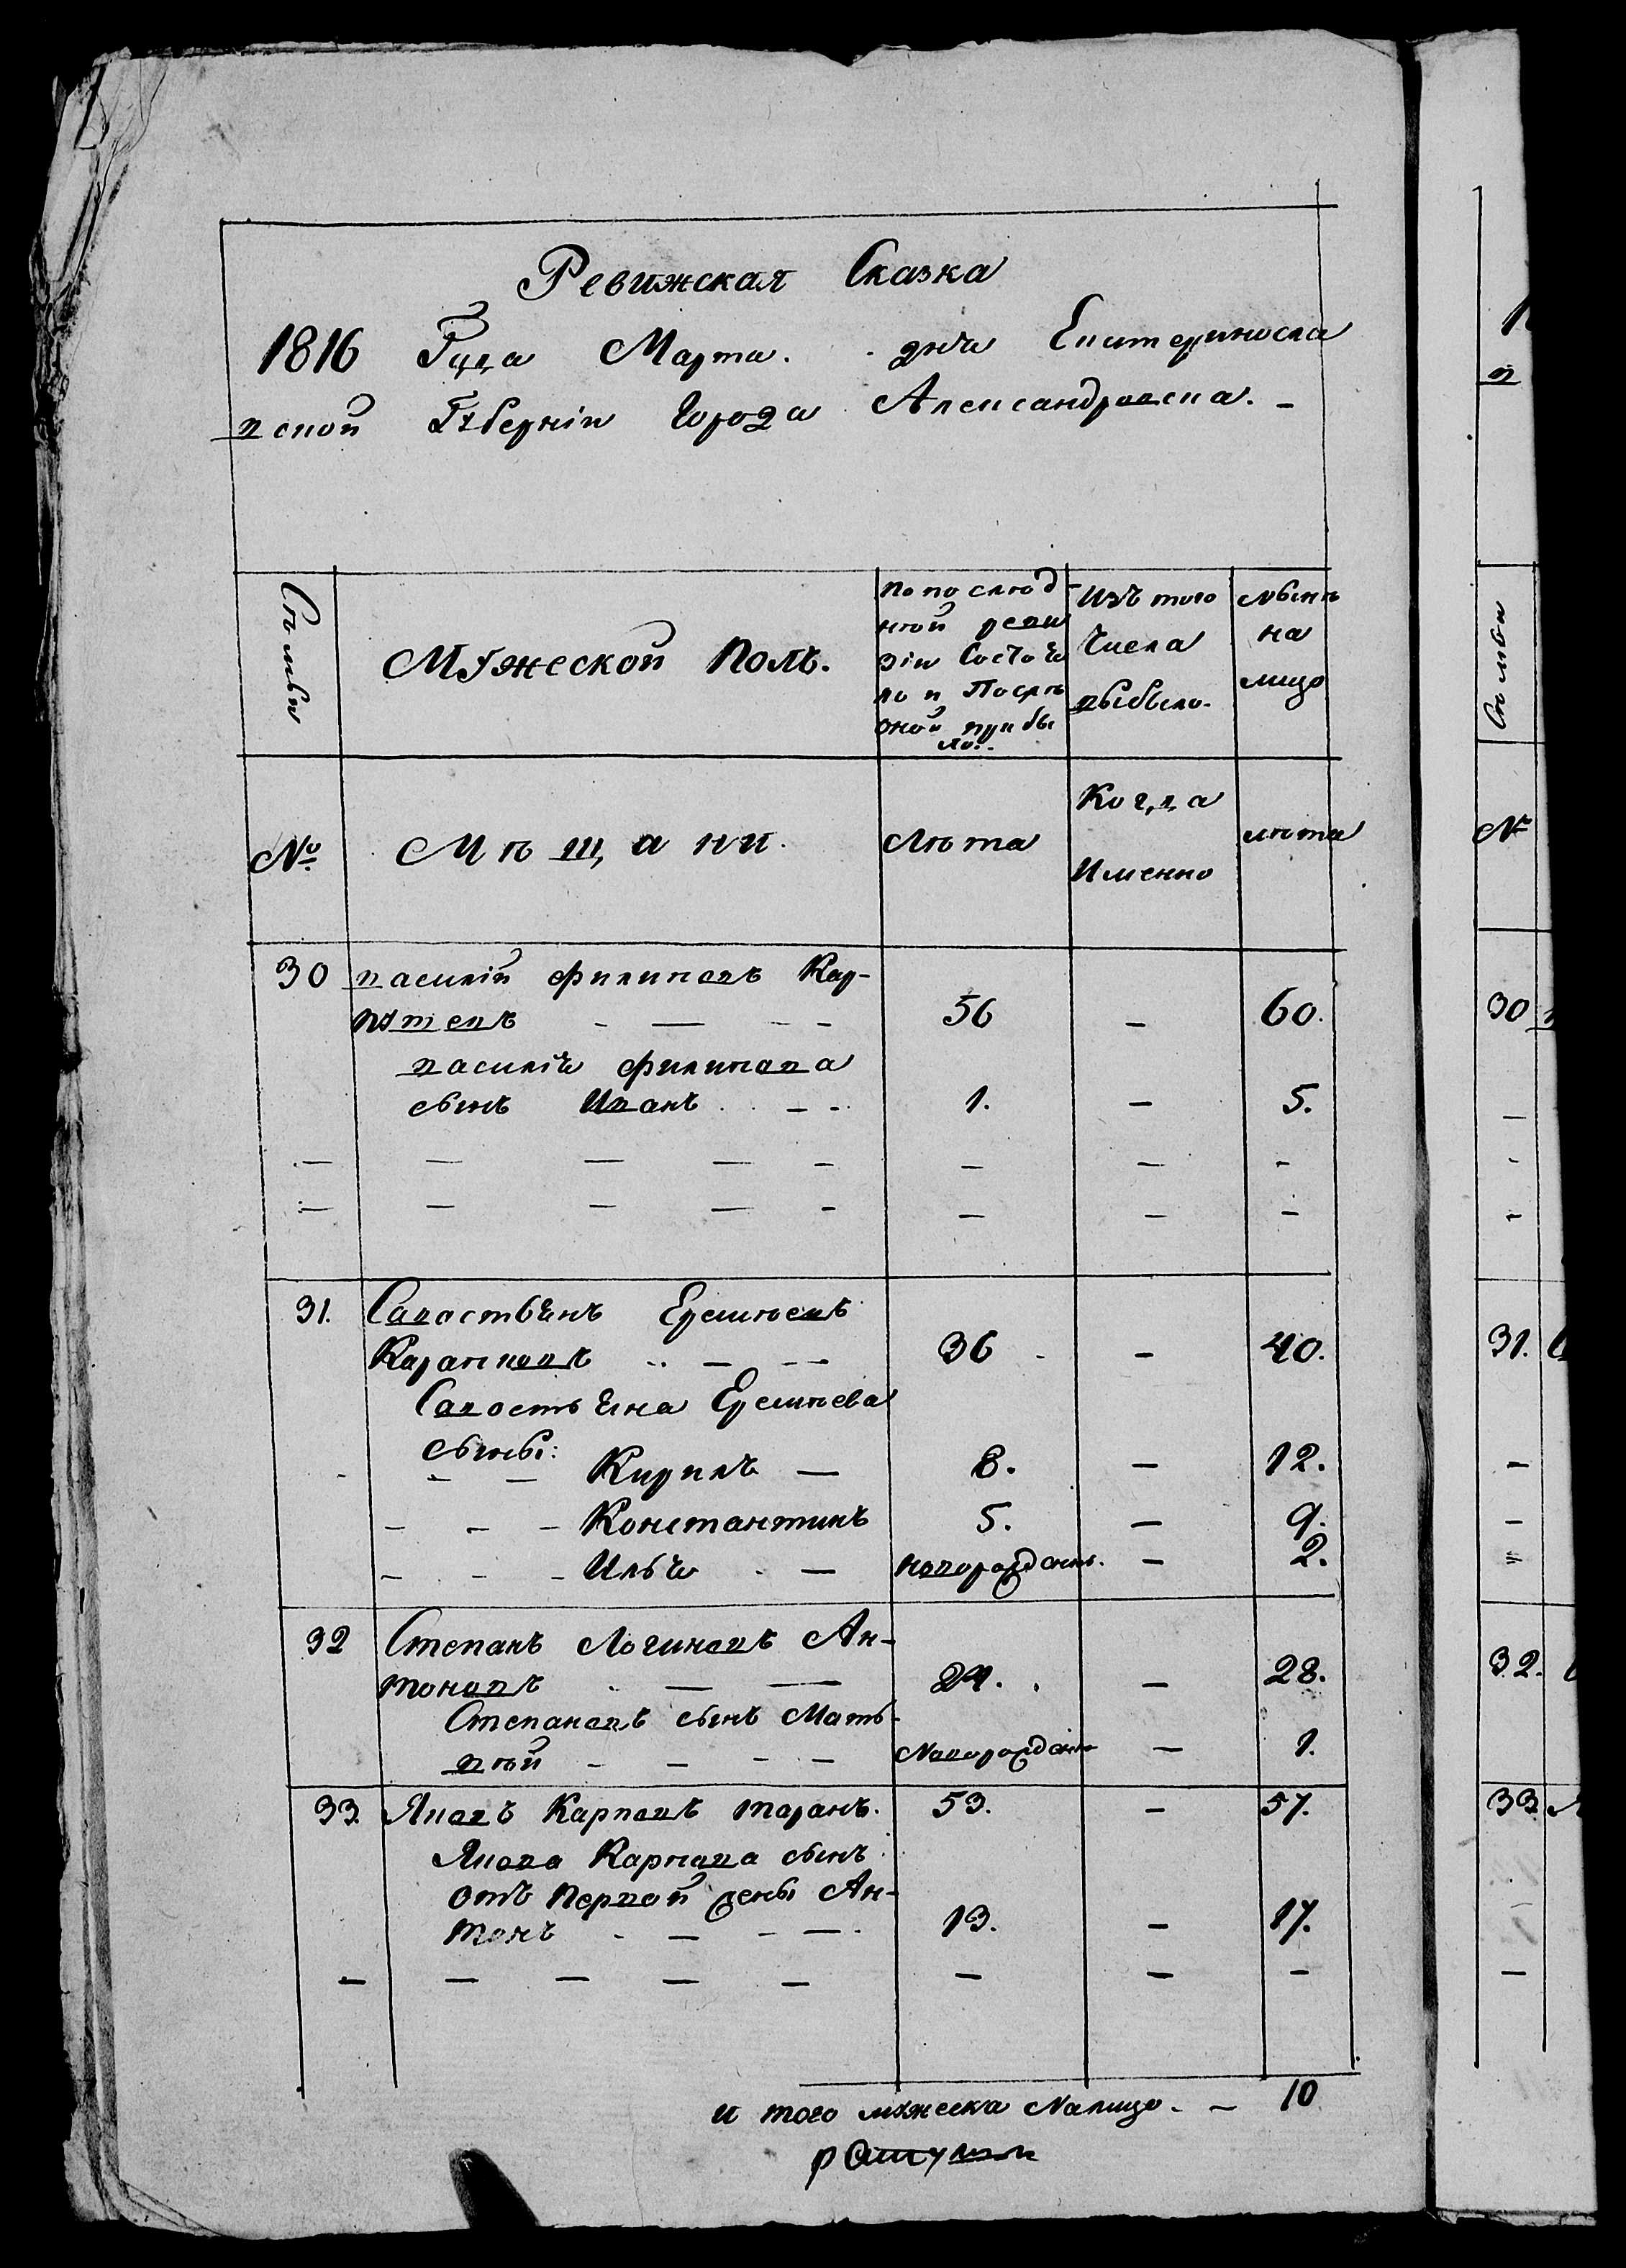 Ревижская Сказка
1816 Года Марта. дня Екатериносла
вской Губерніи Города Александровска. –
Сѣмьи
Мужеской Полъ.
По послѣд
ней реви
зіи Состоя
ло и Послѣ
оной прибы
ло.
Изъ того
Числа
выбыло.
Нынѣ
на
лицо
№
Мѣщани.
Лѣта
Когда
Именно
лѣта
30 Василій Филиповъ Кар-
путевъ – – – – 56 – 60.
Василія Филипова
сынъ Иванъ – – 1. – 5.
31. Савостьянъ Еремѣевъ
Карапповъ – – – 36 – 40.
Савостьяна Еремѣева
сыны:
Кирилъ – 8. – 12.
Константинъ 5. – 9.
Илья – новорожденъ. – 2.
32 Степанъ Логиновъ Ан-
тоновъ – – 24. – 28.
Степановъ сынъ Мать-
вѣй – – – – Новорожденъ – 1.
33. Яковъ Карповъ таранъ. 53. – 57.
Якова Карпова сынъ
отъ Первой жены Ан-
тонъ – – – – 13. – 17.
и того мужеска Налицо. – 10
№
30
31.
32.
33.